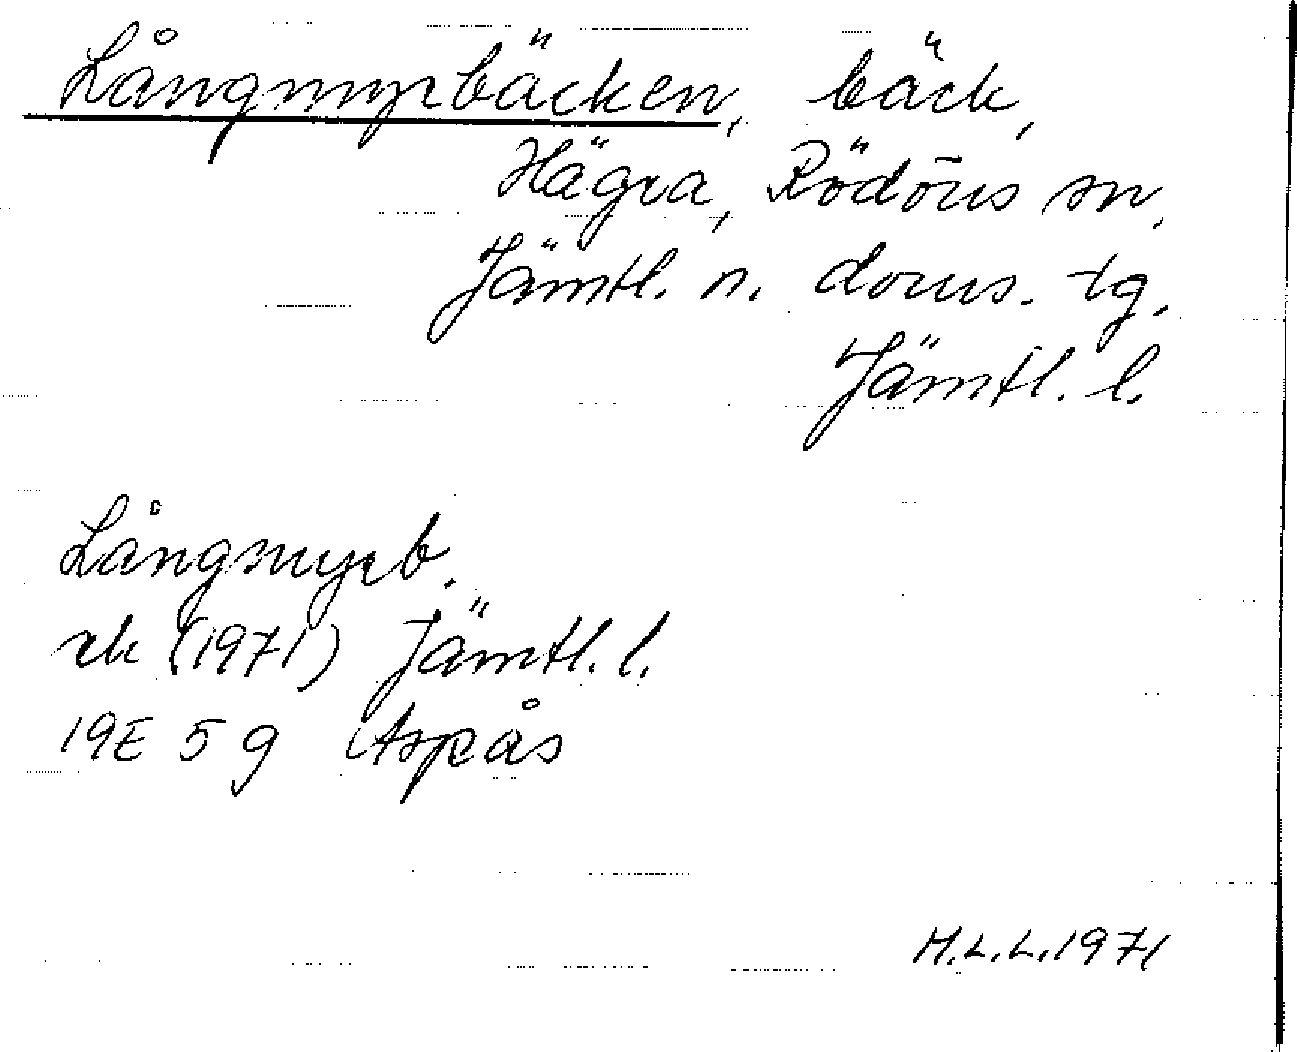 Långmyrbäcken, bäck,
Hägra, Rödöns sn,
Jämtl. n. doms. tg.
Jämtl. l.
Långmyrb.
rek (1971) Jämtl. l.
19E 5 g Aspås
H.L.L. 1971